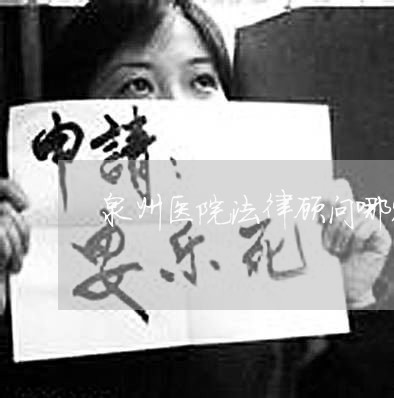 申請：
泉州医院法律顾问哪
安乐死